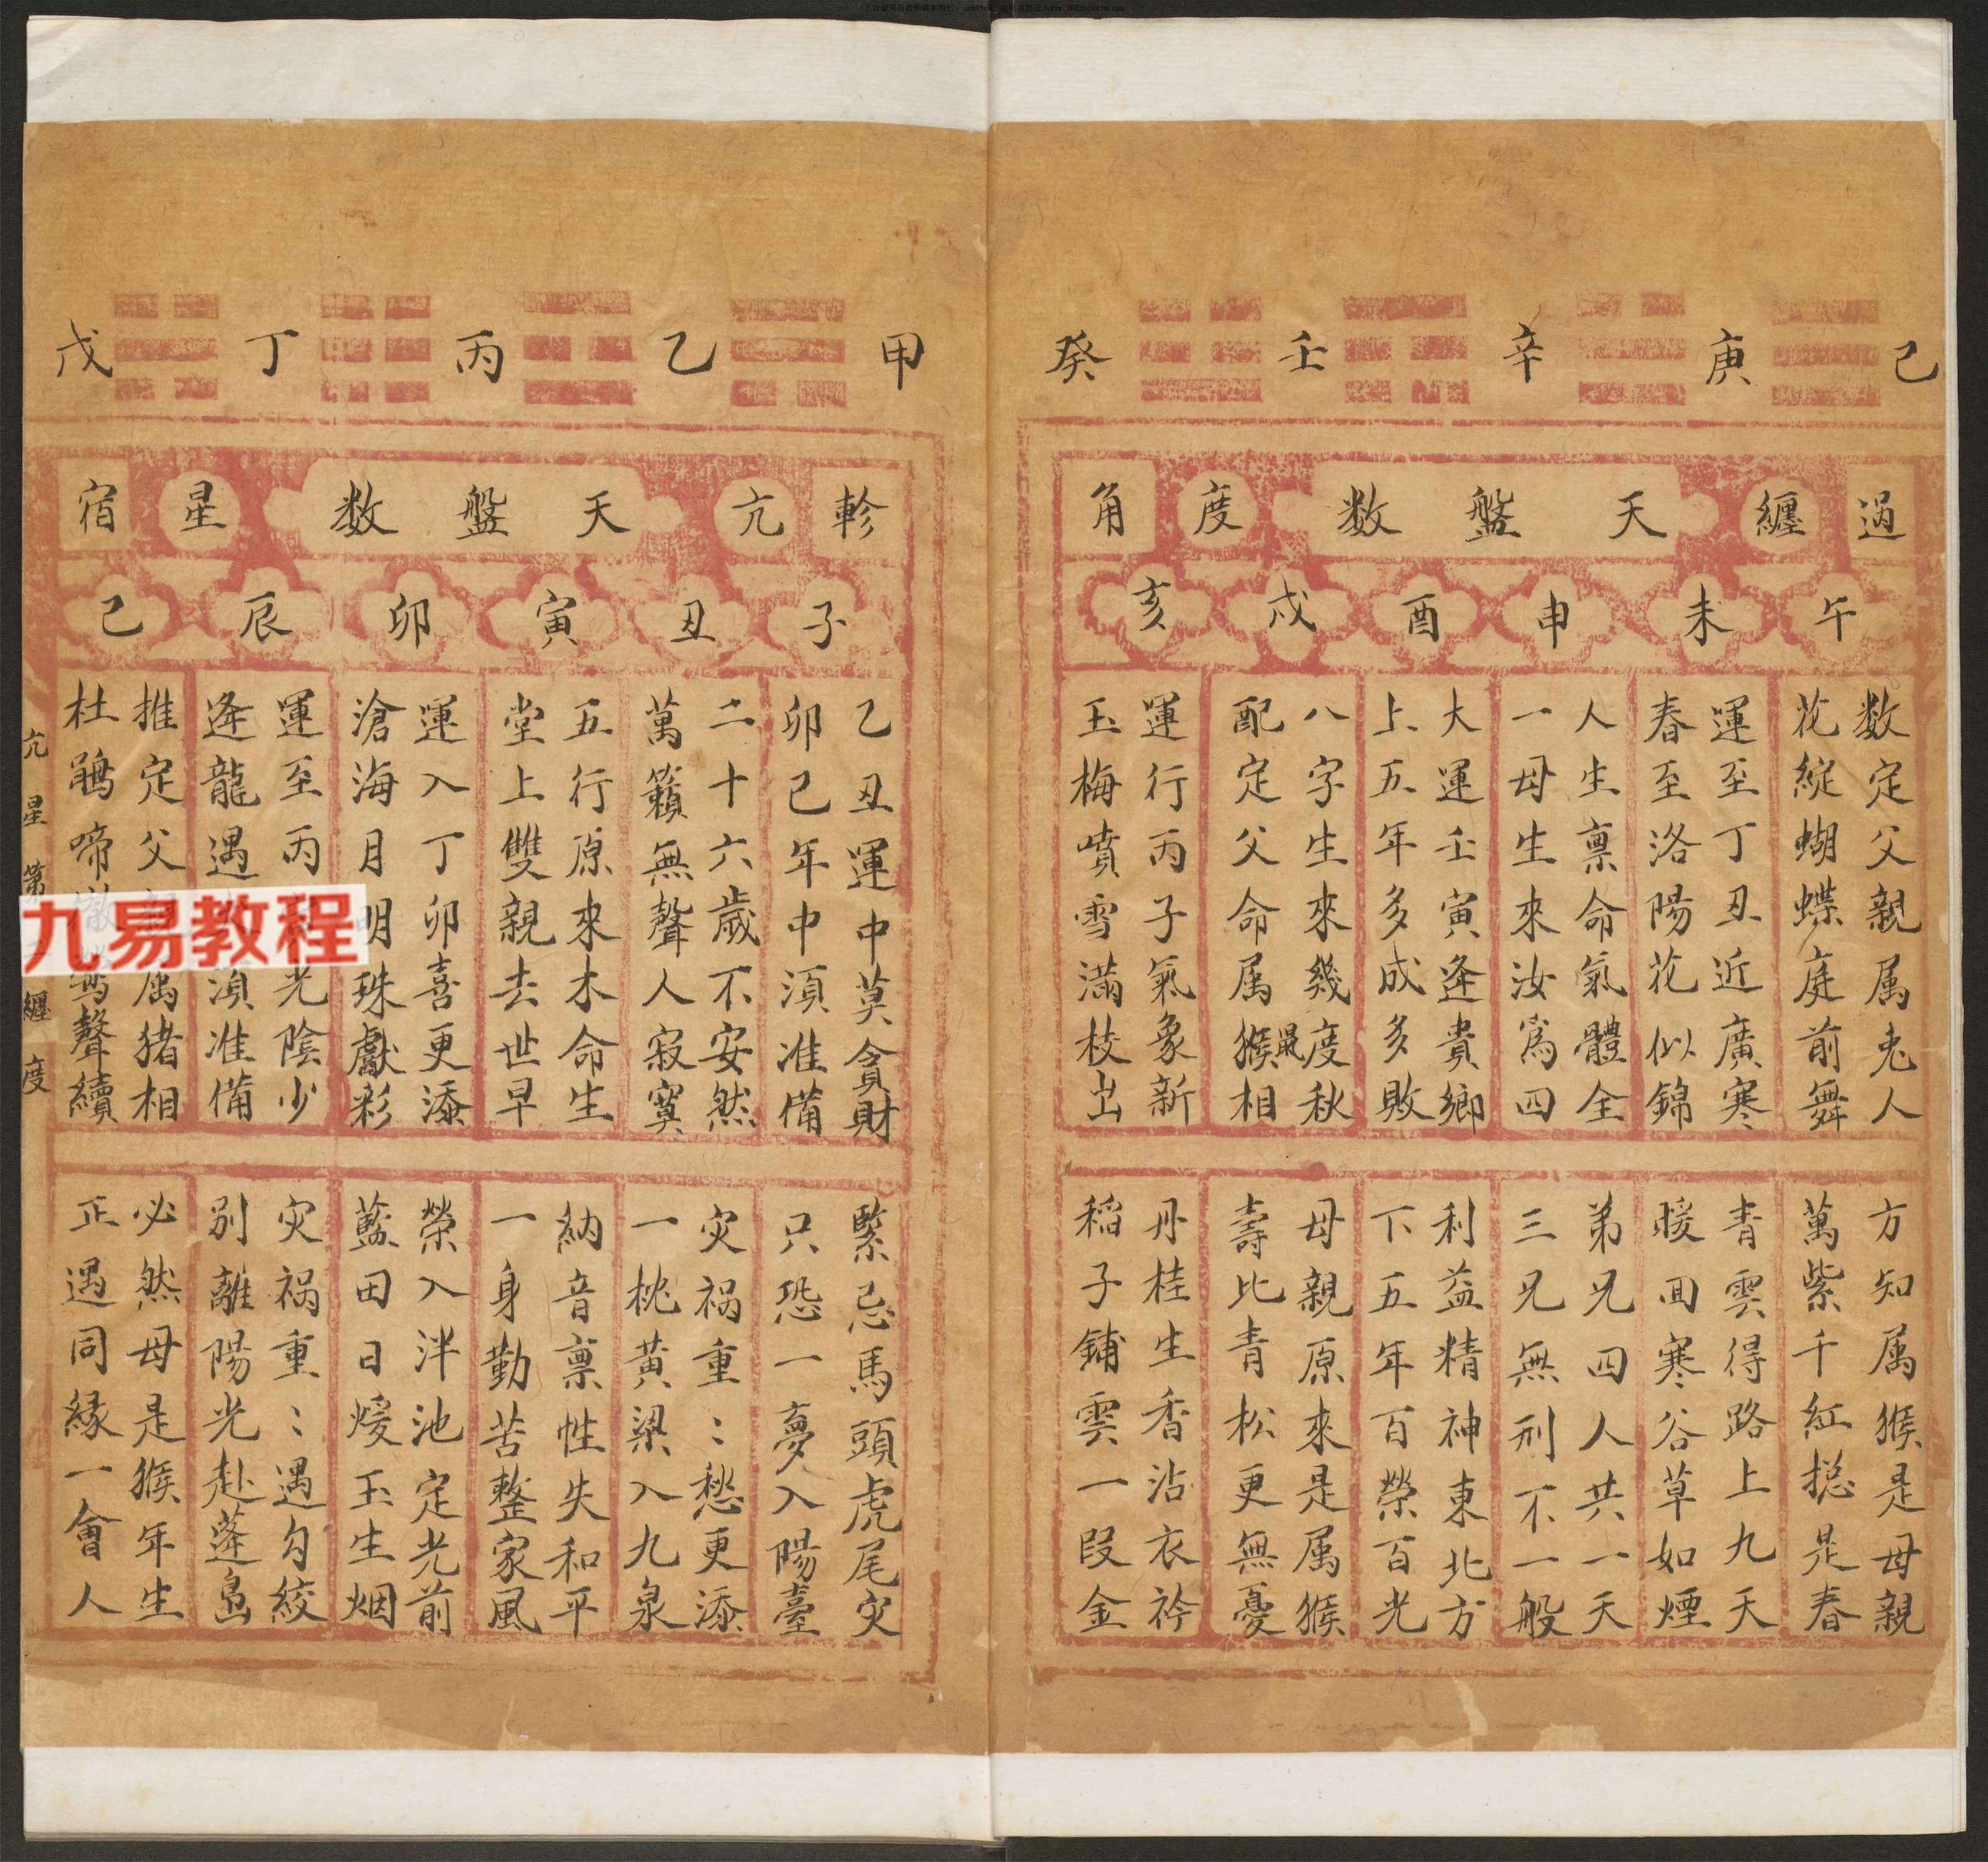 己 庚 辛 壬 癸
過 纏 天盤数 度 角
午 未 申 酉 戌 亥
数定父親属兎人
花綻蝴蝶庭前舞
運至丁丑近廣寒
春至洛陽花似錦
人生禀命氣體全
一母生來汝為四
大運壬寅逢貴鄉
上五年多成多敗
八字生來幾度秋
配定父命属猴最相
運行丙子氣象新
玉梅噴雪滿枝出
方知属猴是母親
萬紫千紅捴是春
青雲得路上九天
暖回寒谷草如煙
弟兄四人共一天
三兄無刑不一般
利益精神東北方
下五年百榮百光
母親原來是属猴
壽比青松更無憂
丹桂生香沾衣衿
稲子鋪雲一段金
甲 乙 丙 丁 戊
軫 亢 天盤数 星 宿
子 丑 寅 卯 辰 己
乙丑運中莫貪財
卯己年中湏准備
二十六歲不安然
萬籟無聲人寂寞
五行原來木命生
堂上雙親去世早
運入丁卯喜更添
滄海月明珠獻彩
運至丙光陰少
逢龍遇湏准備
推定父親属猪相
杜鵑啼聲續
緊忌馬頭虎尾灾
只恐一夢入陽臺
灾祸重〻愁更添
一枕黃梁入九泉
納音禀性失和平
一身勤苦整家風
榮入泮池定光前
藍田日煖玉生烟
灾祸重〻遇勾絞
別離陽光赴蓬島
必然母是猴年生
正遇同緣一會人
亢星第纏度
九易教程